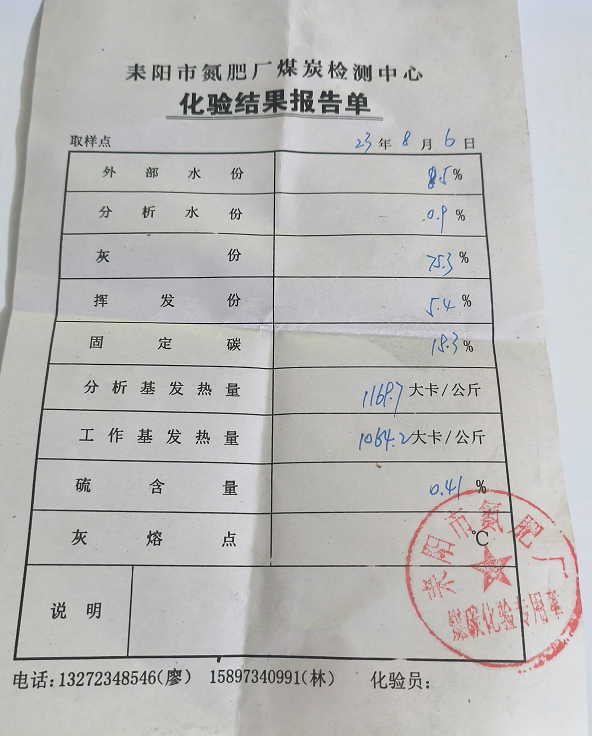 耒阳市氮肥厂煤炭检测中心
化验结果报告单
取样点 23年8月6日
外部水份 8.5%
分析水份 0.9%
灰份 75.3%
挥发份 5.4%
固定碳 18.3%
分析基发热量 1169.7大卡/公斤
工作基发热量 1064.2大卡/公斤
硫含量 0.41%
灰熔点 ℃
耒阳市氮肥厂
煤碳化验专用章
说明
电话:13272348546(廖) 15897340991(林) 化验员: